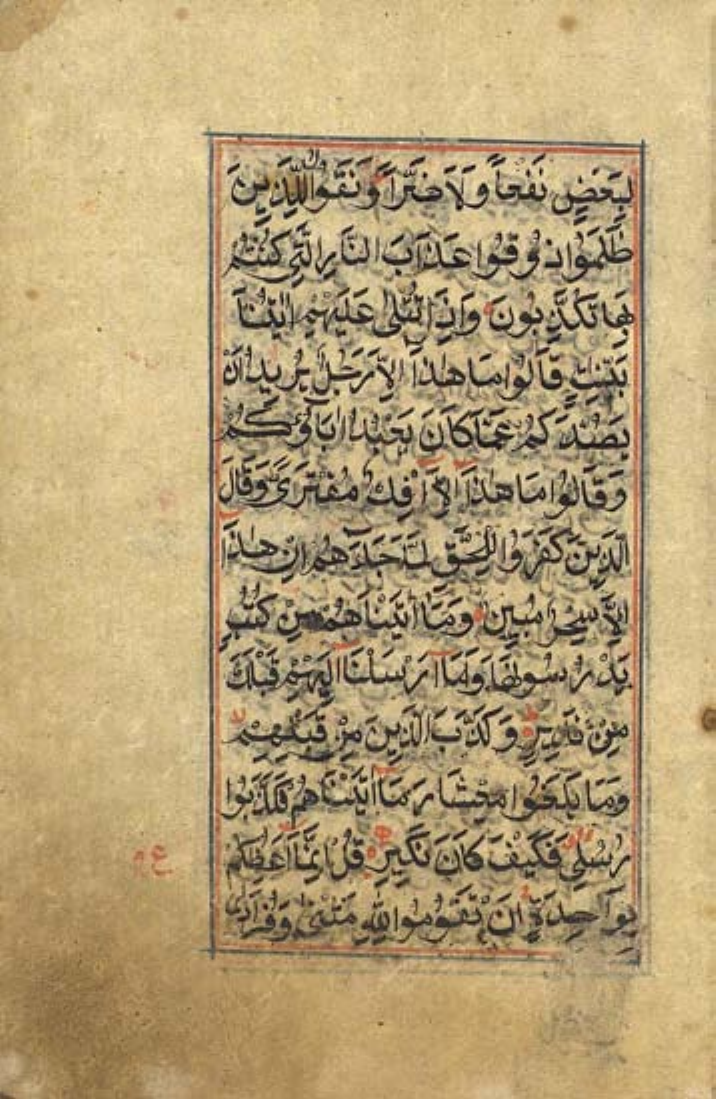 لِبَعْضٍ نَفْعاً وَلَا ضَرّاً وَنَقُولُ لِلَّذِينَ
ظَلَمُوا ذُوقُوا عَذَابَ النَّارِ الَّتِي كُنْتُمْ
بِهَا تُكَذِّبُونَ وَإِذَا تُتْلَىٰ عَلَيْهِمْ اٰيٰتُنَا
بَيِّنٰتٍ قَالُوا مَا هٰذَا اِلَّا رَجُلٌ يُرِيدُ اَنْ
يَصُدَّكُمْ عَمَّا كَانَ يَعْبُدُ اٰبَاؤُكُمْ
وَقَالُوا مَا هٰذَا اِلَّا اِفْكٌ مُفْتَرًى وَقَالَ
الَّذِينَ كَفَرُوا لِلْحَقِّ لَمَّا جَاءَهُمْ اِنْ هٰذَا
اِلَّا سِحْرٌ مُبِينٌ وَمَا اٰتَيْنَاهُمْ مِنْ كُتُبٍ
يَدْرُسُونَهَا وَمَا اَرْسَلْنَا اِلَيْهِمْ قَبْلَكَ
مِنْ نَذِيرٍ وَكَذَّبَ الَّذِينَ مِنْ قَبْلِهِمْ
وَمَا بَلَغُوا مِعْشَارَ مَا اٰتَيْنَاهُمْ فَكَذَّبُوا
رُسُلِي فَكَيْفَ كَانَ نَكِيرِ قُلْ اِنَّمَا اَعِظُكُمْ
بِوَاحِدَةٍ اَنْ تَقُومُوا لِلّٰهِ مَثْنٰى وَفُرَادٰى